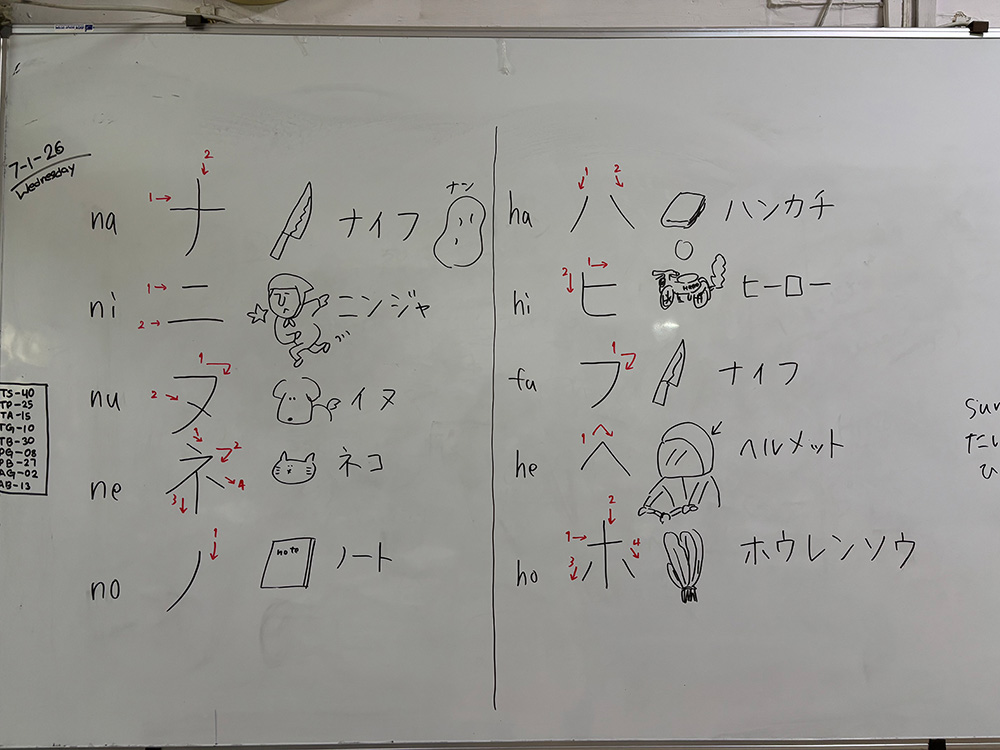 7-1-26
Wednesday
na ナ ナイフ ナン
1→ 2
ni ニ ニンジャ
1→
2→
nu ヌ イヌ
1
2
ne ネ ネコ
1 2 3 4
no ノ note ノート
1
TS-40
TP-25
TA-15
TG-10
TB-30
PG-08
PB-27
AG-02
AB-13
ha ハ ハンカチ
1 2
hi ヒ ヒーロー
2 1→
fu フ ナイフ
1
he ヘ ヘルメット
1
ho ホ ホウレンソウ
1→ 2 3 4